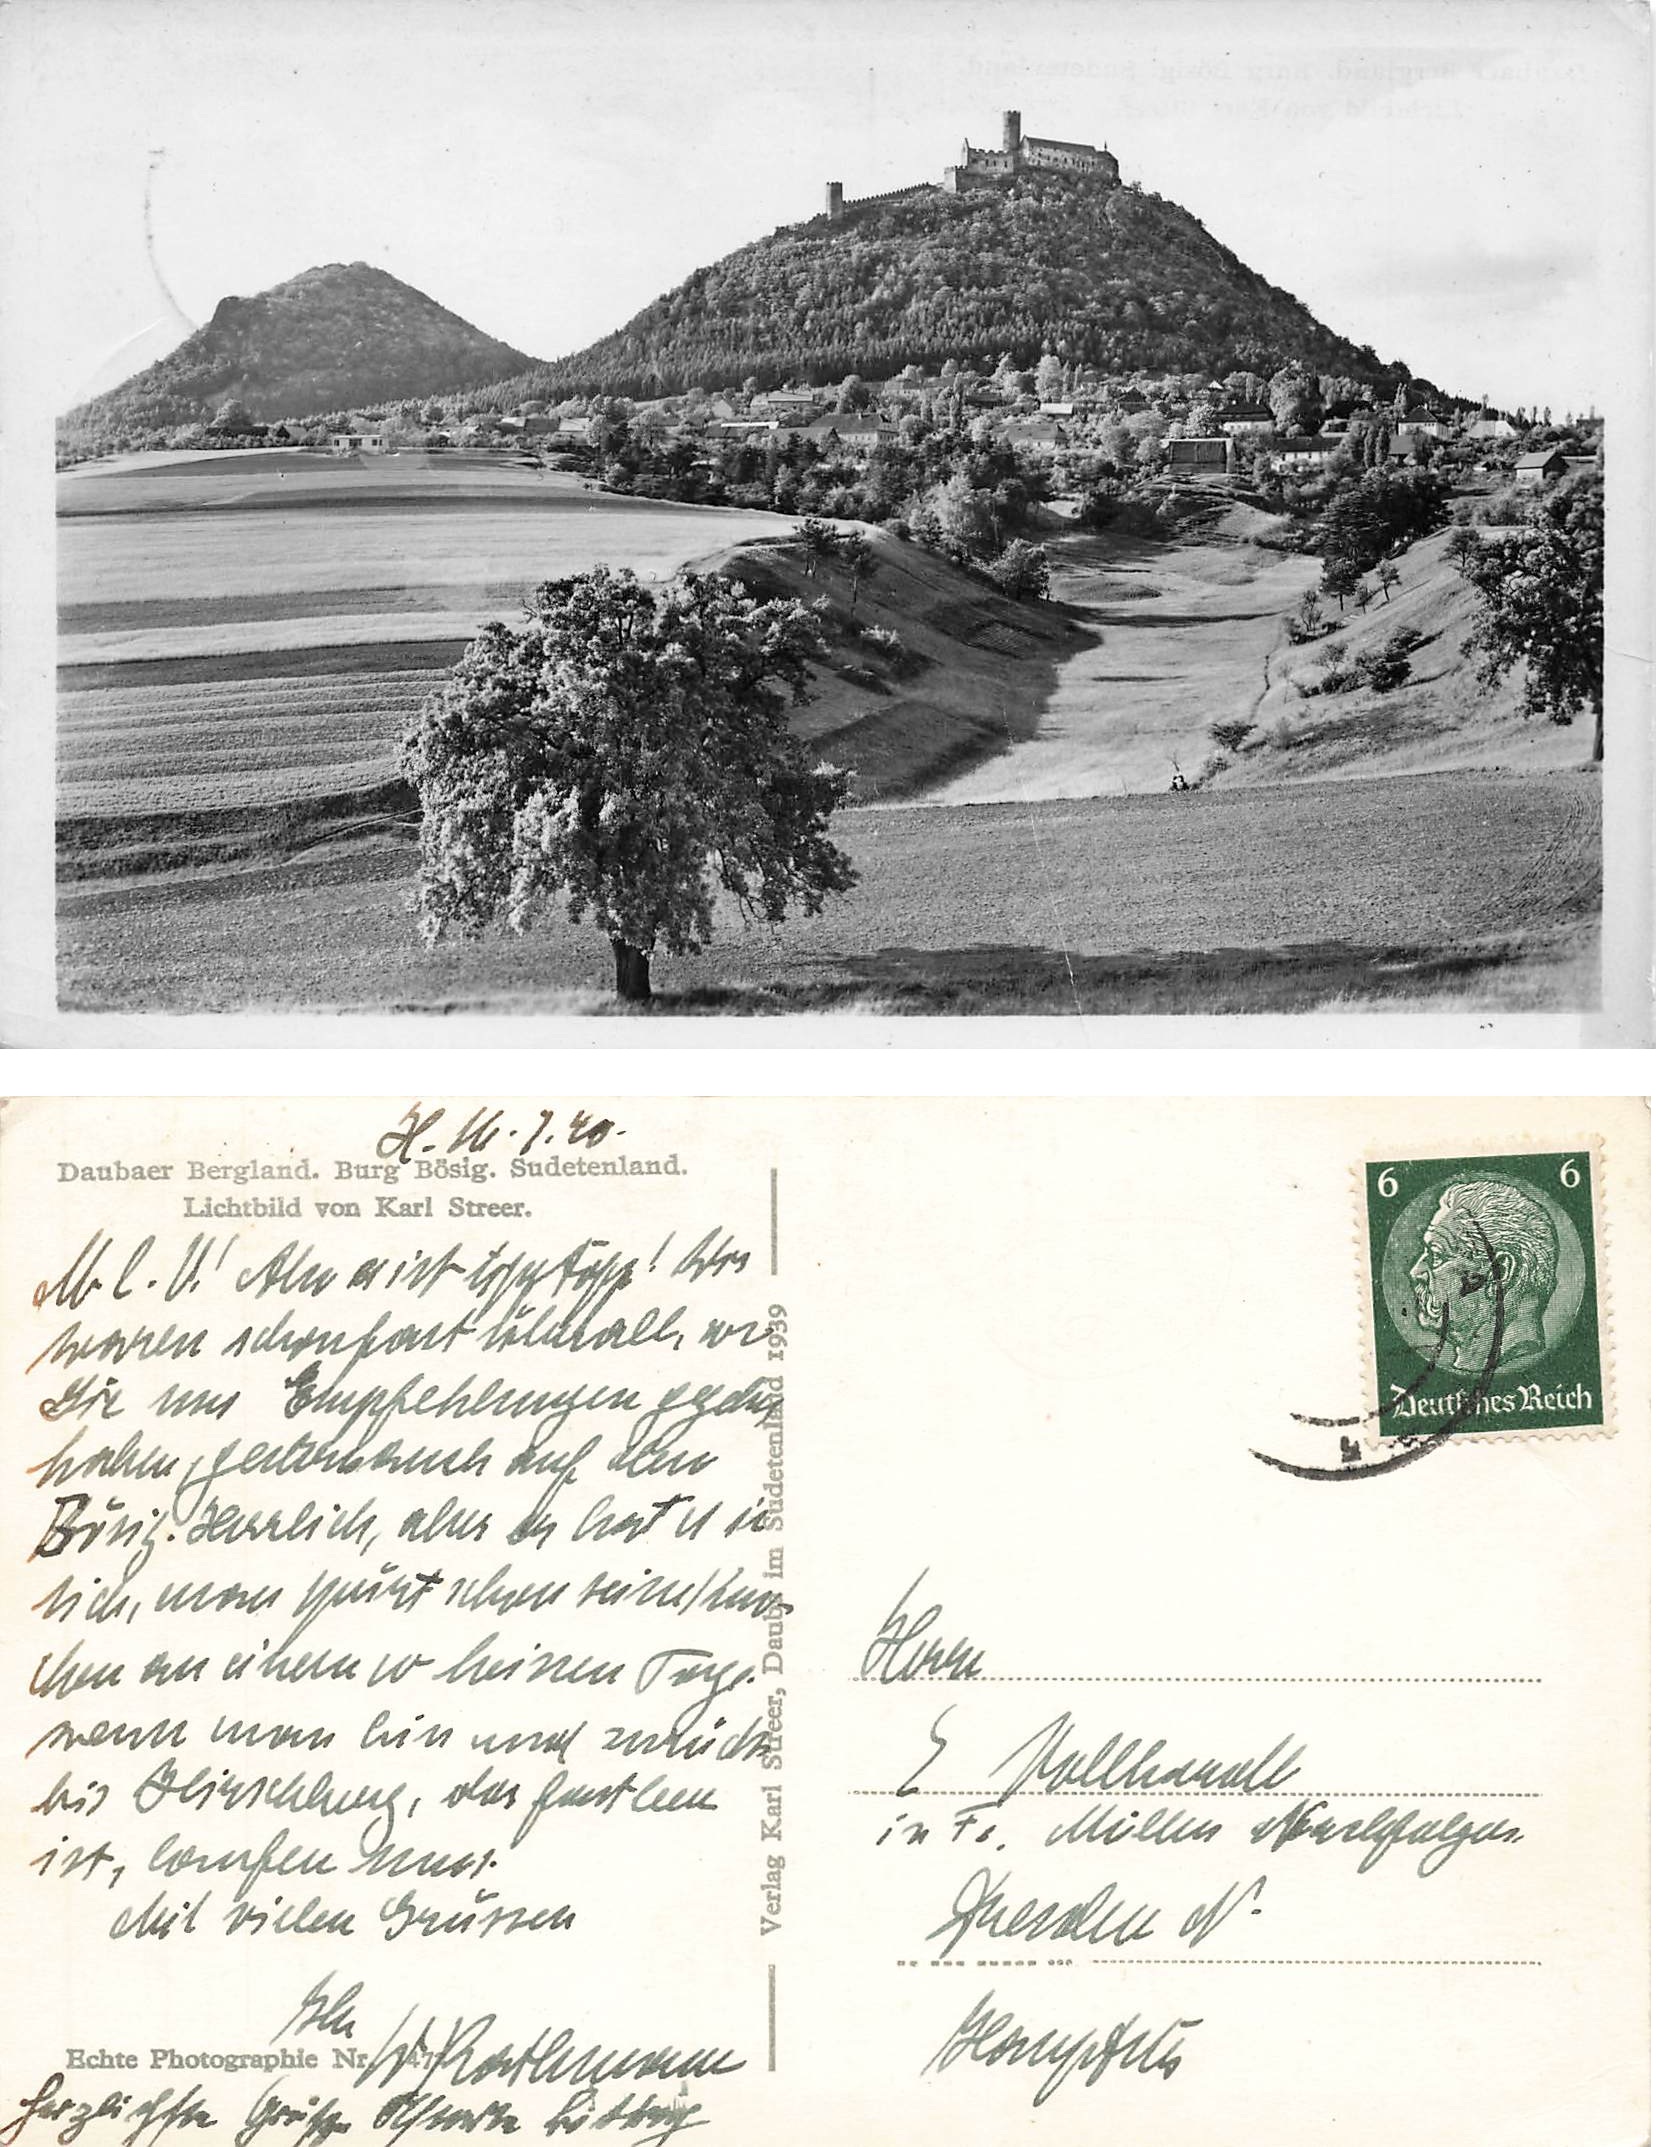 H. 16.7.40.
Daubaer Bergland. Burg Bösig. Sudetenland.
Lichtbild von Karl Streer.
M. l. V.! Also es ist tipp topp! Wir
waren schon fast überall, wo
Sie uns Empfehlungen gegeben
haben, gestern auch auf dem
Bösig. Herrlich, aber er hat es in
sich, man spürt schon seine Kno-
chen an einem so heissen Tage.
wenn man hin und zurück
bis Hirschberg, das fast leer
ist, laufen muss.
Mit vielen Grüssen
Ihr
Echte Photographie Nr. 47
Herzlichste Grüße
Verlag Karl Streer, Dauba im Sudetenland 1939
6 6
Deutsches Reich
Herrn
E
in Fa. Nachfolger
Dresden N.
Hauptstr.